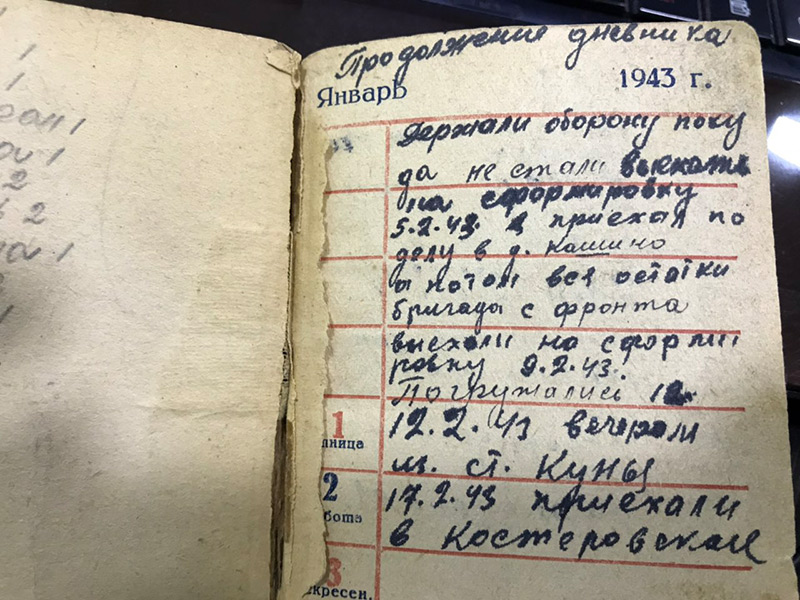 1
1
1
2
2
1
Продолжение дневника
Январь 1943 г.
Держали оборону поку
да не стали выезжать
на сформировку
5.2.43. я приехал по
делу в д. Кашино
а потом все остатки
бригады с фронта
выехали на сформи
ровку 9.2.43.
Погружались 12.
1
тница
12.2.43 вечером
ст. Куньы
2
бота
17.2.43 приехали
в Костеровская
3
скресен.